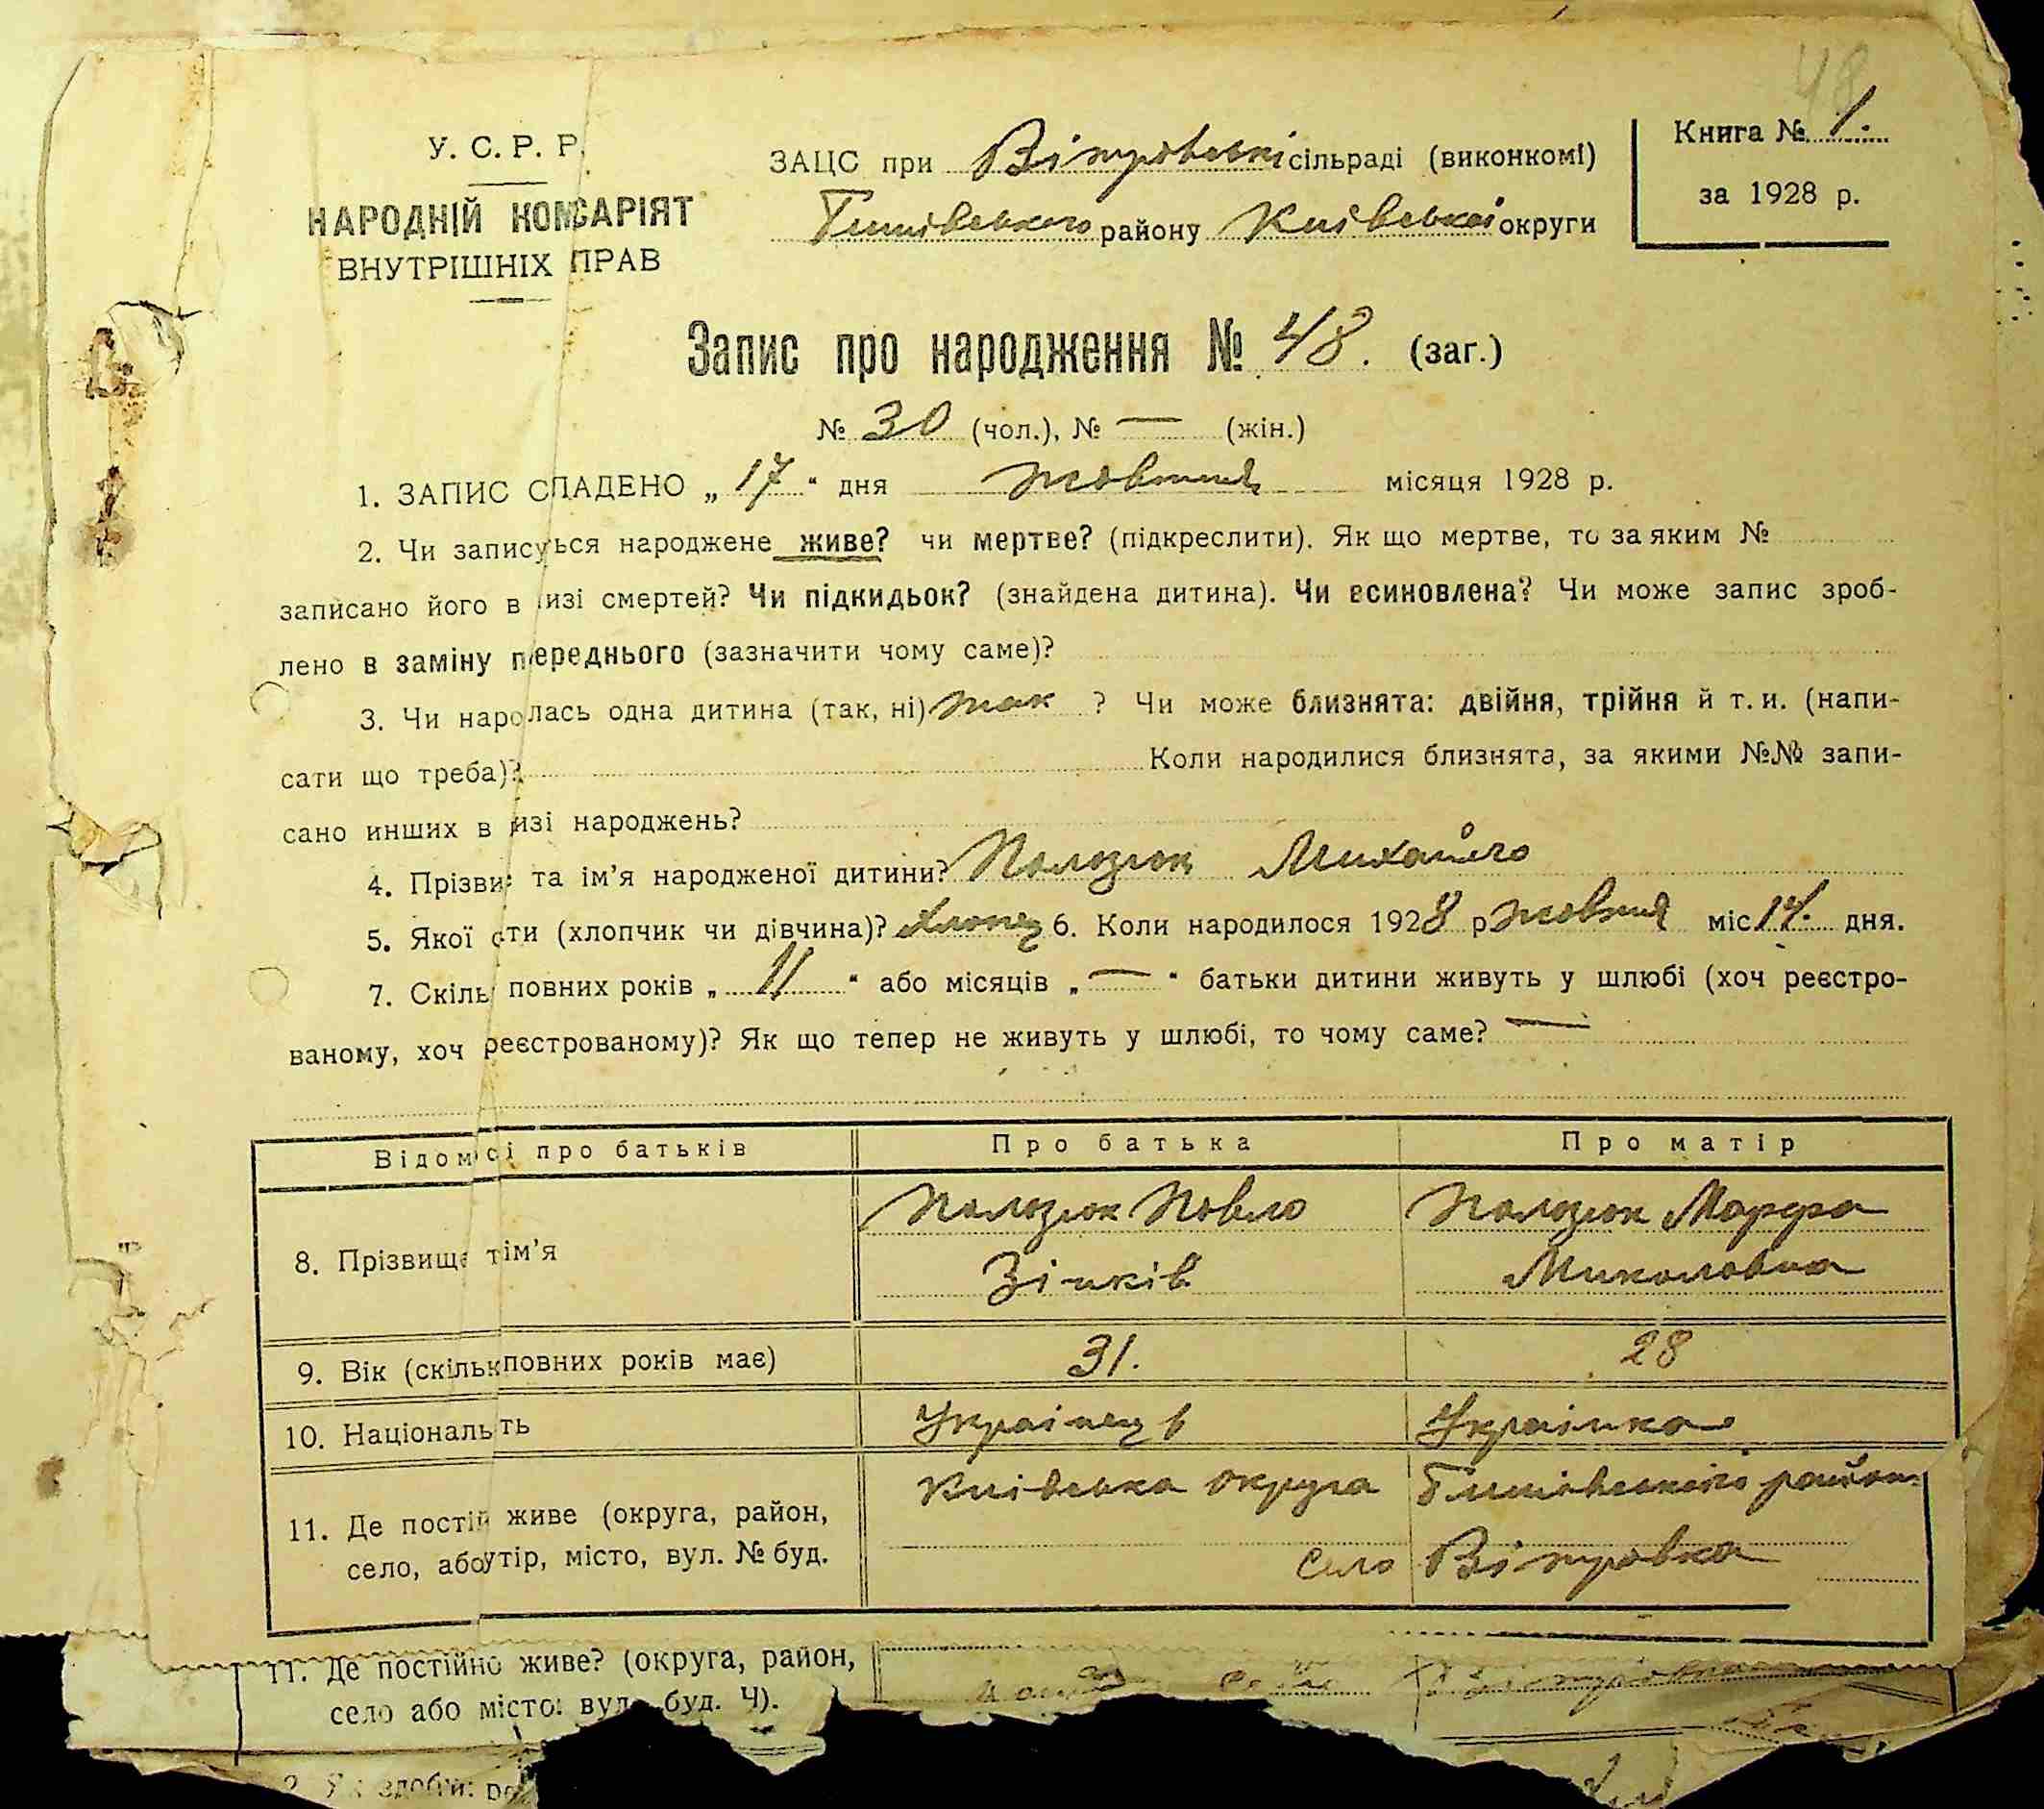 48
У. С. Р. Р.
НАРОДНІЙ КОМІСАРІЯТ
ВНУТРІШНІХ ПРАВ
ЗАЦС при Вітровській сільраді (виконкомі)
району Київської округи
Книга № 1.
за 1928 р.
Запис про народження № 48. (заг.)
№ 30 (чол.), № — (жін.)
1. ЗАПИС СКЛАДЕНО „ 17 “ дня жовтня місяця 1928 р.
2. Чи записується народжене живе? чи мертве? (підкреслити). Як що мертве, то за яким №
записано його в книзі смертей? Чи підкидьок? (знайдена дитина). Чи всиновлена? Чи може запис зроб-
лено в заміну переднього (зазначити чому саме)?
3. Чи народилась одна дитина (так, ні) так ? Чи може близнята: двійня, трійня й т. и. (напи-
сати що треба)? Коли народилися близнята, за якими №№ запи-
сано инших в книзі народжень?
4. Прізвище та ім’я народженої дитини? Полозюк Михайло
5. Якої статі (хлопчик чи дівчина)? хлопец 6. Коли народилося 1928 р жовтня міс 14. дня.
7. Скільки повних років „ 11 “ або місяців „ — “ батьки дитини живуть у шлюбі (хоч реєстро-
ваному, хоч реєстрованому)? Як що тепер не живуть у шлюбі, то чому саме? —
Відомості про батьків Про батька Про матір
8. Прізвище та ім’я Полозюк Повло Полозюк Марфа
Зіньків Миколовна
9. Вік (скільки повних років має) 31. 28
10. Національність Українець Українка
11. Де постійно живе (округа, район, Київська округа району
село, або хутір, місто, вул. № буд. село Вітровка
11. Де постійно живе? (округа, район,
село або місто: вул. буд. Ч).